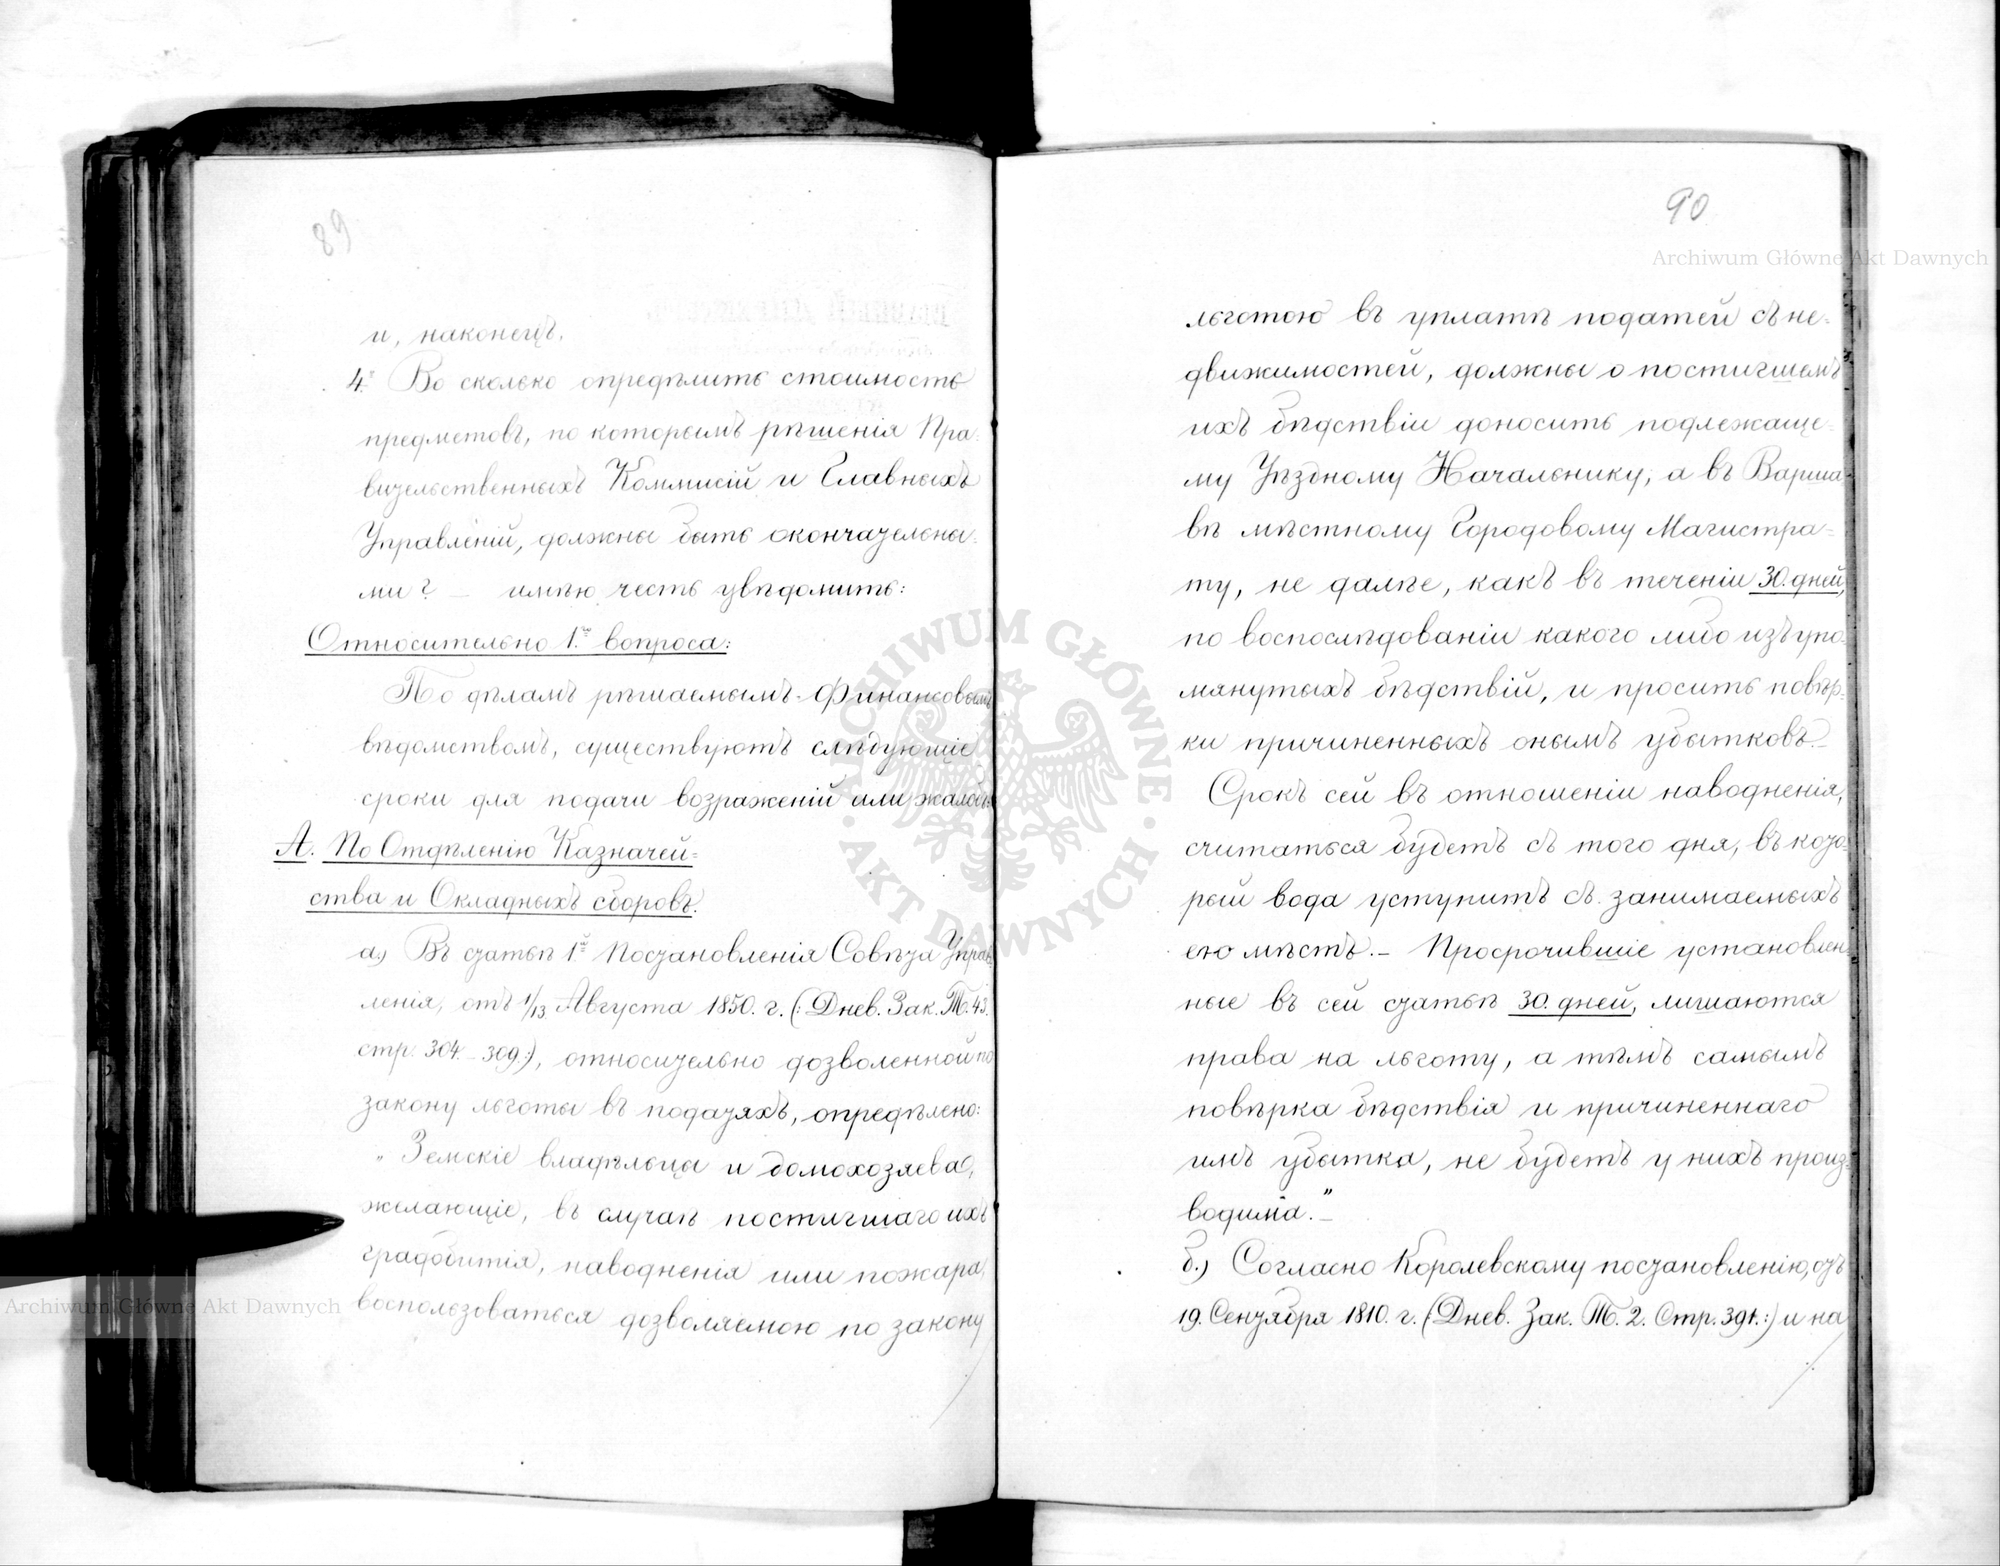 89
и, наконецъ,
4. Во сколько опредѣлить стоимость
предметовъ, по которымъ рѣшенія Пра-
вительственныхъ Коммисій и Главныхъ
Управленій, должны быть окончательны-
ми? — имѣю честь увѣдомить:
Относительно 1го вопроса:
По дѣламъ рѣшаемымъ Финансовымъ
вѣдомствомъ, существуютъ слѣдующіе
сроки для подачи возраженій или жалобъ:
А. По Отдѣленію Казначей=
ства и Окладныхъ сборовъ.
а) Въ статьѣ 1й Постановленія Совѣта Управ-
ленія, отъ 1/13 Августа 1850. г. (: Днев. Зак. Т. 43.
стр. 304. – 309.:), относительно дозволенной по
закону льготы въ податяхъ, опредѣлено:
„Земскіе владѣльцы и домохозяева,
желающіе, въ случаѣ постигшаго ихъ
градобитія, наводненія или пожара,
воспользоваться дозволяемою по закону
90
льготою въ уплатѣ податей съ не-
движимостей, должны о постигшемъ
ихъ бѣдствіи доносить подлежаще-
му Уѣздному Начальнику, а въ Варша-
вѣ мѣстному Городовому Магистра-
ту, не далѣе, какъ въ теченіи 30. дней,
по воспослѣдованіи какого либо изъ упо-
мянутыхъ бѣдствій, и просить повѣр-
ки причиненныхъ онымъ убытковъ. –
Срокъ сей въ отношеніи наводненія,
считаться будетъ съ того дня, въ кото-
рый вода уступитъ съ занимаемыхъ
ею мѣстъ. – Просрочившіе установлен-
ные въ сей статьѣ 30. дней, лишаются
права на льготу, а тѣмъ самымъ
повѣрка бѣдствія и причиненнаго
имъ убытка, не будетъ у нихъ произ-
водима.” –
б.) Согласно Королевскому постановленію, отъ
19. Сентября 1810. г. (Днев. Зак. Т. 2. Стр. 391.:) и на
Archiwum Główne Akt Dawnych
ARCHIWUM GŁÓWNE · AKT DAWNYCH ·
Archiwum Główne Akt Dawnych